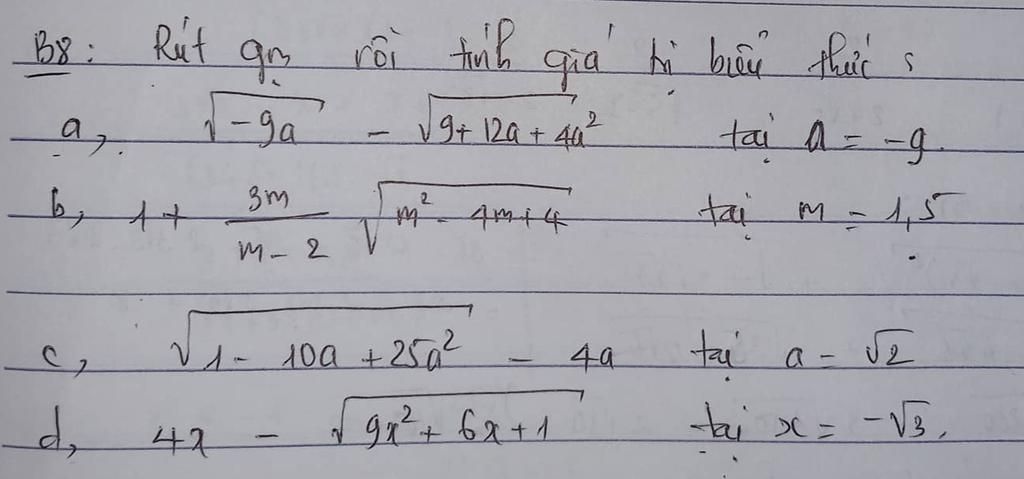 B8: Rút gọn rồi tính giá trị biểu thức :
a, √(-9a) - √(9 + 12a + 4a²) tại a = -9.
b, 1 + 3m/(m - 2) √(m² - 4m + 4) tại m = 1,5
c, √(1 - 10a + 25a²) - 4a tại a = √2
d, 4x - √(9x² + 6x + 1) tại x = -√3.